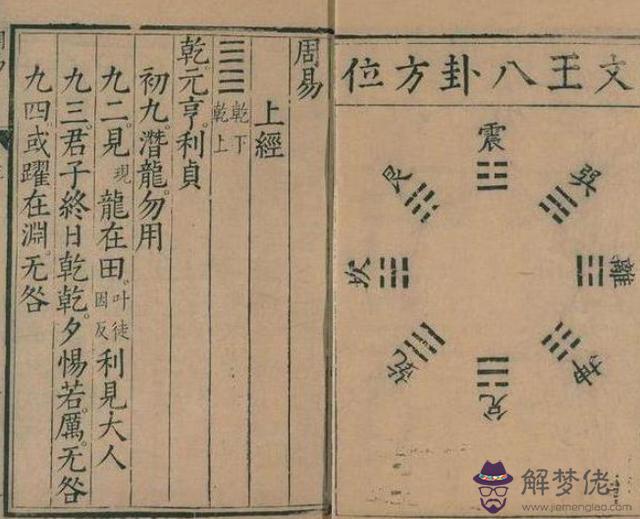 文王八卦方位
震
巽
離
坤
兌
乾
坎
艮
周易
上經
乾下
乾上
乾。元亨。利貞
初九。潛龍。勿用
九二。見現龍在田。叶徒因反利見大人
九三。君子終日乾乾。夕惕若。厲。无咎
九四。或躍在淵。无咎
解梦佬
www.jiemenglao.com